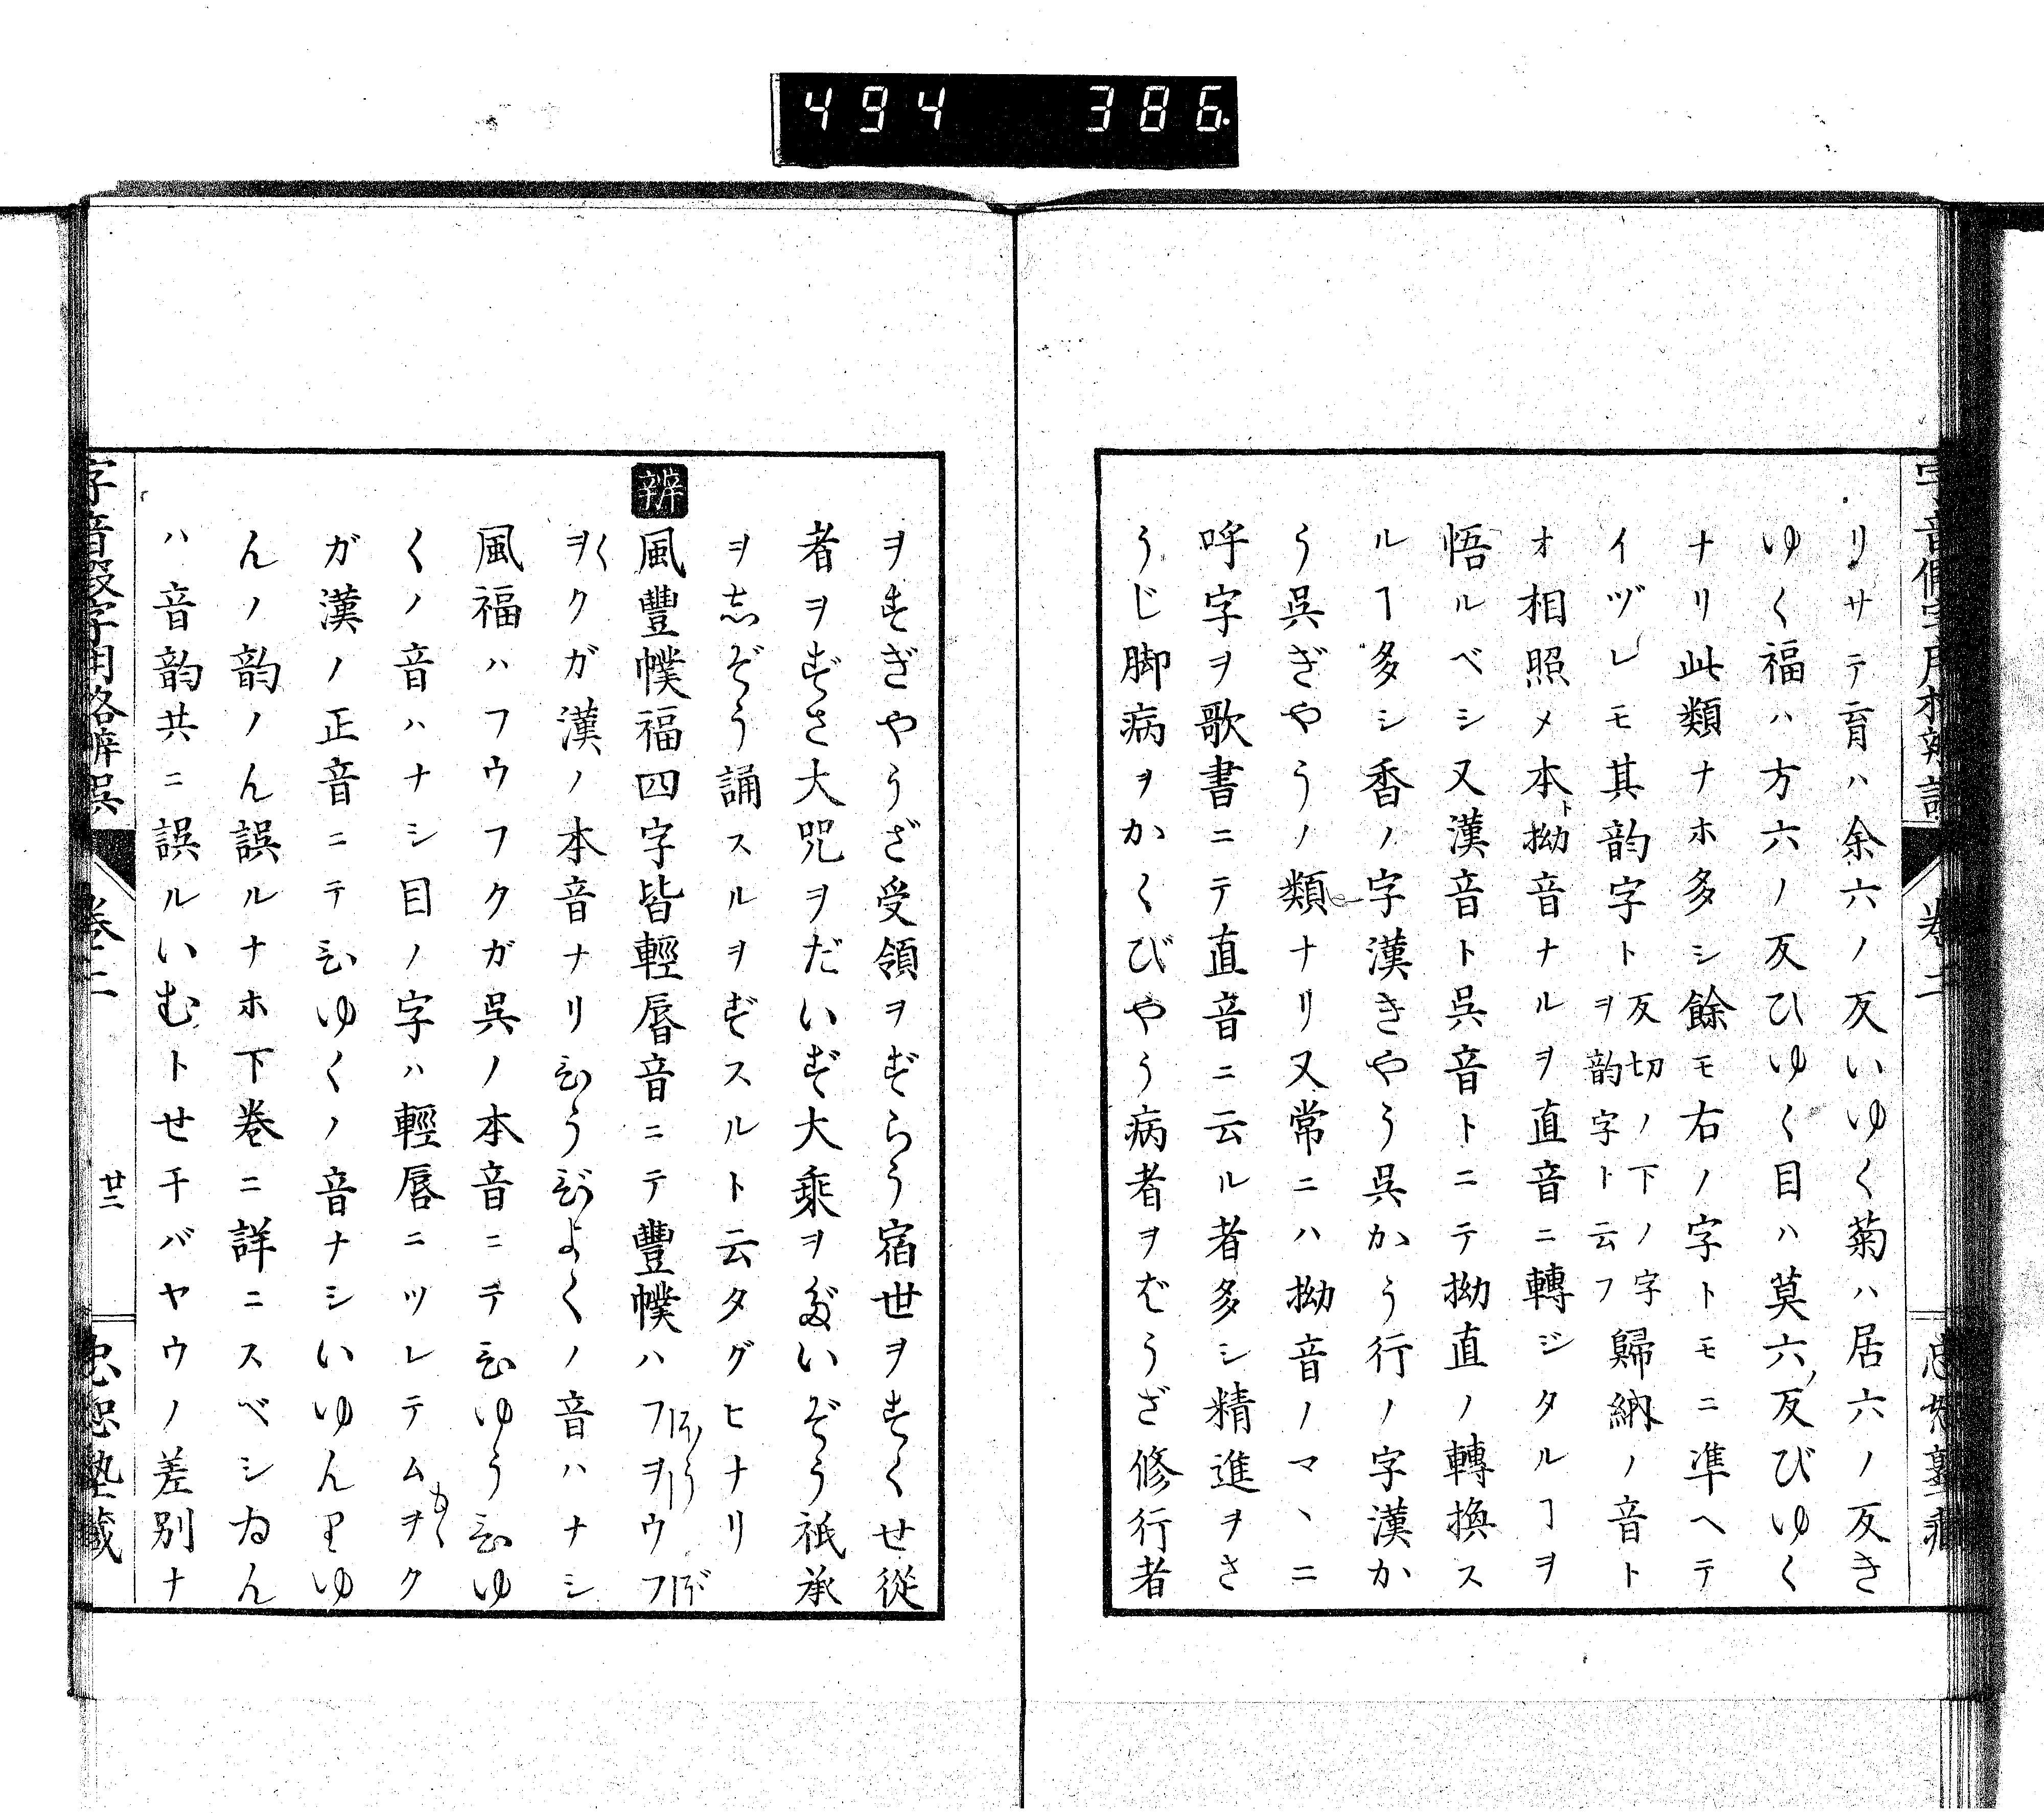 494 386
リサテ育ハ余六ノ反いゆく菊ハ居六ノ反き
ゆく福ハ方六ノ反ひゆく目ハ莫六ノ反びゆく
ナリ此類ナホ多シ餘モ右ノ字トモニ準ヘテ
イヅレモ其韵字ト反切ノ下ノ字ヲ韵字ト云フ歸納ノ音ト
オ相照メ本ト拗音ナルヲ直音ニ轉ジタルヿヲ
悟ルベシ又漢音ト呉音トニテ拗直ノ轉換ス
ルヿ多シ香ノ字漢きやう呉かう行ノ字漢か
う呉ぎやうノ類ナリ又常ニハ拗音ノマヽニ
呼字ヲ歌書ニテ直音ニ云ル者多シ精進ヲさ
うじ脚病ヲかくびやう病者ヲばうざ修行者
ヲすぎやうざ受領ヲずらう宿世ヲすくせ從
者ヲずさ大咒ヲだいず大乘ヲだいぞう祇承
ヲしぞう誦スルヲずスルト云タグヒナリ
辨 風豐幞福四字皆輕唇音ニテ豐幞ハフヲウフ
ヲクガ漢ノ本音ナリひうびよくノ音ハナシ
風福ハフウフクガ呉ノ本音ニテひゆうひゆ
くノ音ハナシ目ノ字ハ輕唇ニツレテムヲク
ガ漢ノ正音ニテひゆくノ音ナシいゆんりゆ
んノ韵ノん誤ルナホ下巻ニ詳ニスベシゐん
ハ音韵共ニ誤ルいむトせチバヤウノ差別ナ
字音假字用格辨誤 卷二 廿二 忠恕塾藏